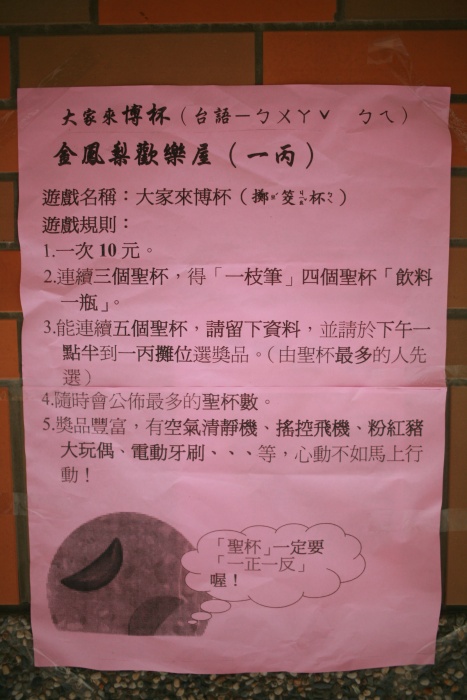 大家來博杯（台語－ㄅㄨㄚˇ ㄅㄟ）
金鳳梨歡樂屋（一丙）
遊戲名稱：大家來博杯（擲筊杯）
遊戲規則：
1.一次 10 元。
2.連續三個聖杯，得「一枝筆」四個聖杯「飲料
一瓶」。
3.能連續五個聖杯，請留下資料，並請於下午一
點半到一丙攤位選獎品。（由聖杯最多的人先
選）
4.隨時會公佈最多的聖杯數。
5.獎品豐富，有空氣清靜機、搖控飛機、粉紅豬
大玩偶、電動牙刷、、、等，心動不如馬上行
動！
「聖杯」一定要
「一正一反」
喔！